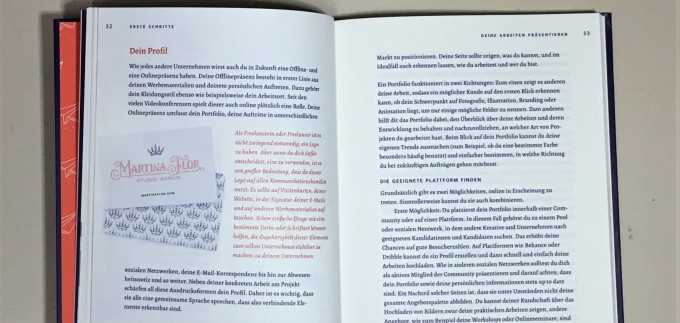 32 ERSTE SCHRITTE
Dein Profil
Wie jedes andere Unternehmen wirst auch du in Zukunft eine Offline- und
eine Onlinepräsenz haben. Deine Offlinepräsenz besteht in erster Linie aus
deinen Werbematerialien und deinem persönlichen Auftreten. Dazu gehört
dein Kleidungsstil ebenso wie beispielsweise dein Arbeitsort. Seit den
vielen Videokonferenzen spielt dieser auch online plötzlich eine Rolle. Deine
Onlinepräsenz umfasst dein Portfolio, deine Auftritte in unterschiedlichen
MARTINA FLOR
STUDIO BERLIN
MARTINAFLOR.COM
Als Freelancerin oder Freelancer ist es
nicht zwingend notwendig, ein Logo
zu haben. Aber wenn du dich dafür
entscheidest, eins zu verwenden, ist es
von großer Bedeutung, dass du dieses
Logo auf allen Kommunikationskanälen
nutzt: Es sollte auf Visitenkarten, deiner
Website, in der Signatur deiner E-Mails
und auf anderen Werbematerialien auf-
tauchen. Schon einfache Dinge wie eine
bestimmte Farbe oder Schriftart können
helfen, die Zugehörigkeit dieser Elemente
zum selben Unternehmen sichtbar zu
machen: zu deinem Unternehmen.
sozialen Netzwerken, deine E-Mail-Korrespondenz bis hin zur Abwesen-
heitsnotiz und so weiter. Neben deiner konkreten Arbeit am Projekt
schärfen all diese Ausdrucksformen dein Profil. Daher ist es wichtig, dass
sie alle eine gemeinsame Sprache sprechen, dass also verbindende Ele-
mente erkennbar sind.
DEINE ARBEITEN PRÄSENTIEREN 33
Markt zu positionieren. Deine Seite sollte zeigen, was du kannst, und im
Idealfall auch erkennen lassen, wie du arbeitest und wer du bist.
Ein Portfolio funktioniert in zwei Richtungen: Zum einen zeigt es anderen
deine Arbeit, sodass ein möglicher Kunde auf den ersten Blick erkennen
kann, ob dein Schwerpunkt auf Fotografie, Illustration, Branding oder
Animation liegt, um nur einige mögliche Felder zu nennen. Zum anderen
hilft dir das Portfolio dabei, den Überblick über deine Arbeiten und deren
Entwicklung zu behalten und nachzuvollziehen, an welcher Art von Pro-
jekten du gearbeitet hast. Beim Blick auf dein Portfolio kannst du deine
eigenen Trends ausmachen (zum Beispiel, ob du eine bestimmte Farbe
besonders häufig benutzt) und einfacher bestimmen, in welche Richtung
du bei zukünftigen Aufträgen gehen möchtest.
DIE GEEIGNETE PLATTFORM FINDEN
Grundsätzlich gibt es zwei Möglichkeiten, online in Erscheinung zu
treten. Sinnvollerweise kannst du sie auch kombinieren.
Erste Möglichkeit: Du platzierst dein Portfolio innerhalb einer Com-
munity oder auf einer Plattform. In diesem Fall gehörst du zu einem Pool
oder sozialen Netzwerk, in dem andere Kreative und Unternehmen nach
geeigneten Kandidatinnen und Kandidaten suchen. Das erhöht deine
Chancen auf gute Besucherzahlen. Auf Plattformen wie Behance oder
Dribbble kannst du ein Profil erstellen und dann schnell und einfach deine
Arbeiten hochladen. Wie in anderen sozialen Netzwerken solltest du dich
als aktives Mitglied der Community präsentieren und darauf achten, dass
dein Portfolio sowie deine persönlichen Informationen stets up to date
sind. Ein Nachteil solcher Seiten ist, dass sie unter Umständen nicht deine
gesamte Angebotspalette abbilden. Du kannst deiner Kundschaft über das
Hochladen von Bildern zwar deine praktischen Arbeiten zeigen, andere
Angebote, wie zum Beispiel deine Workshops oder Onlineseminare, sind